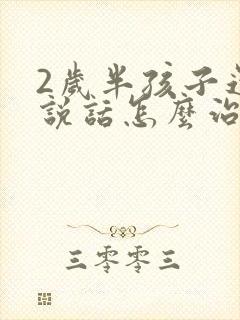 2歲半孩子還
說話怎麼治
三零零三